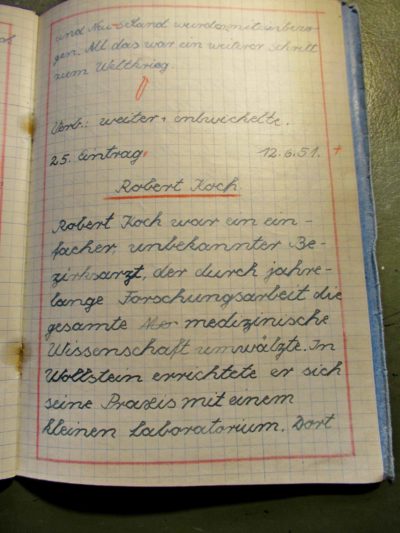 und Neuseeland wurden mit einbezo-
gen. All das war ein weiterer Schritt
zum Weltkrieg.
Verb.: weiter, entwickelte.
25. Eintrag. 12.6.51.
Robert Koch
Robert Koch war ein ein-
facher, unbekannter Be-
zirksarzt, der durch jahre-
lange Forschungsarbeit die
gesamte medizinische
Wissenschaft umwälzte. In
Wollstein errichtete er sich
seine Praxis mit einem
kleinen Laboratorium. Dort